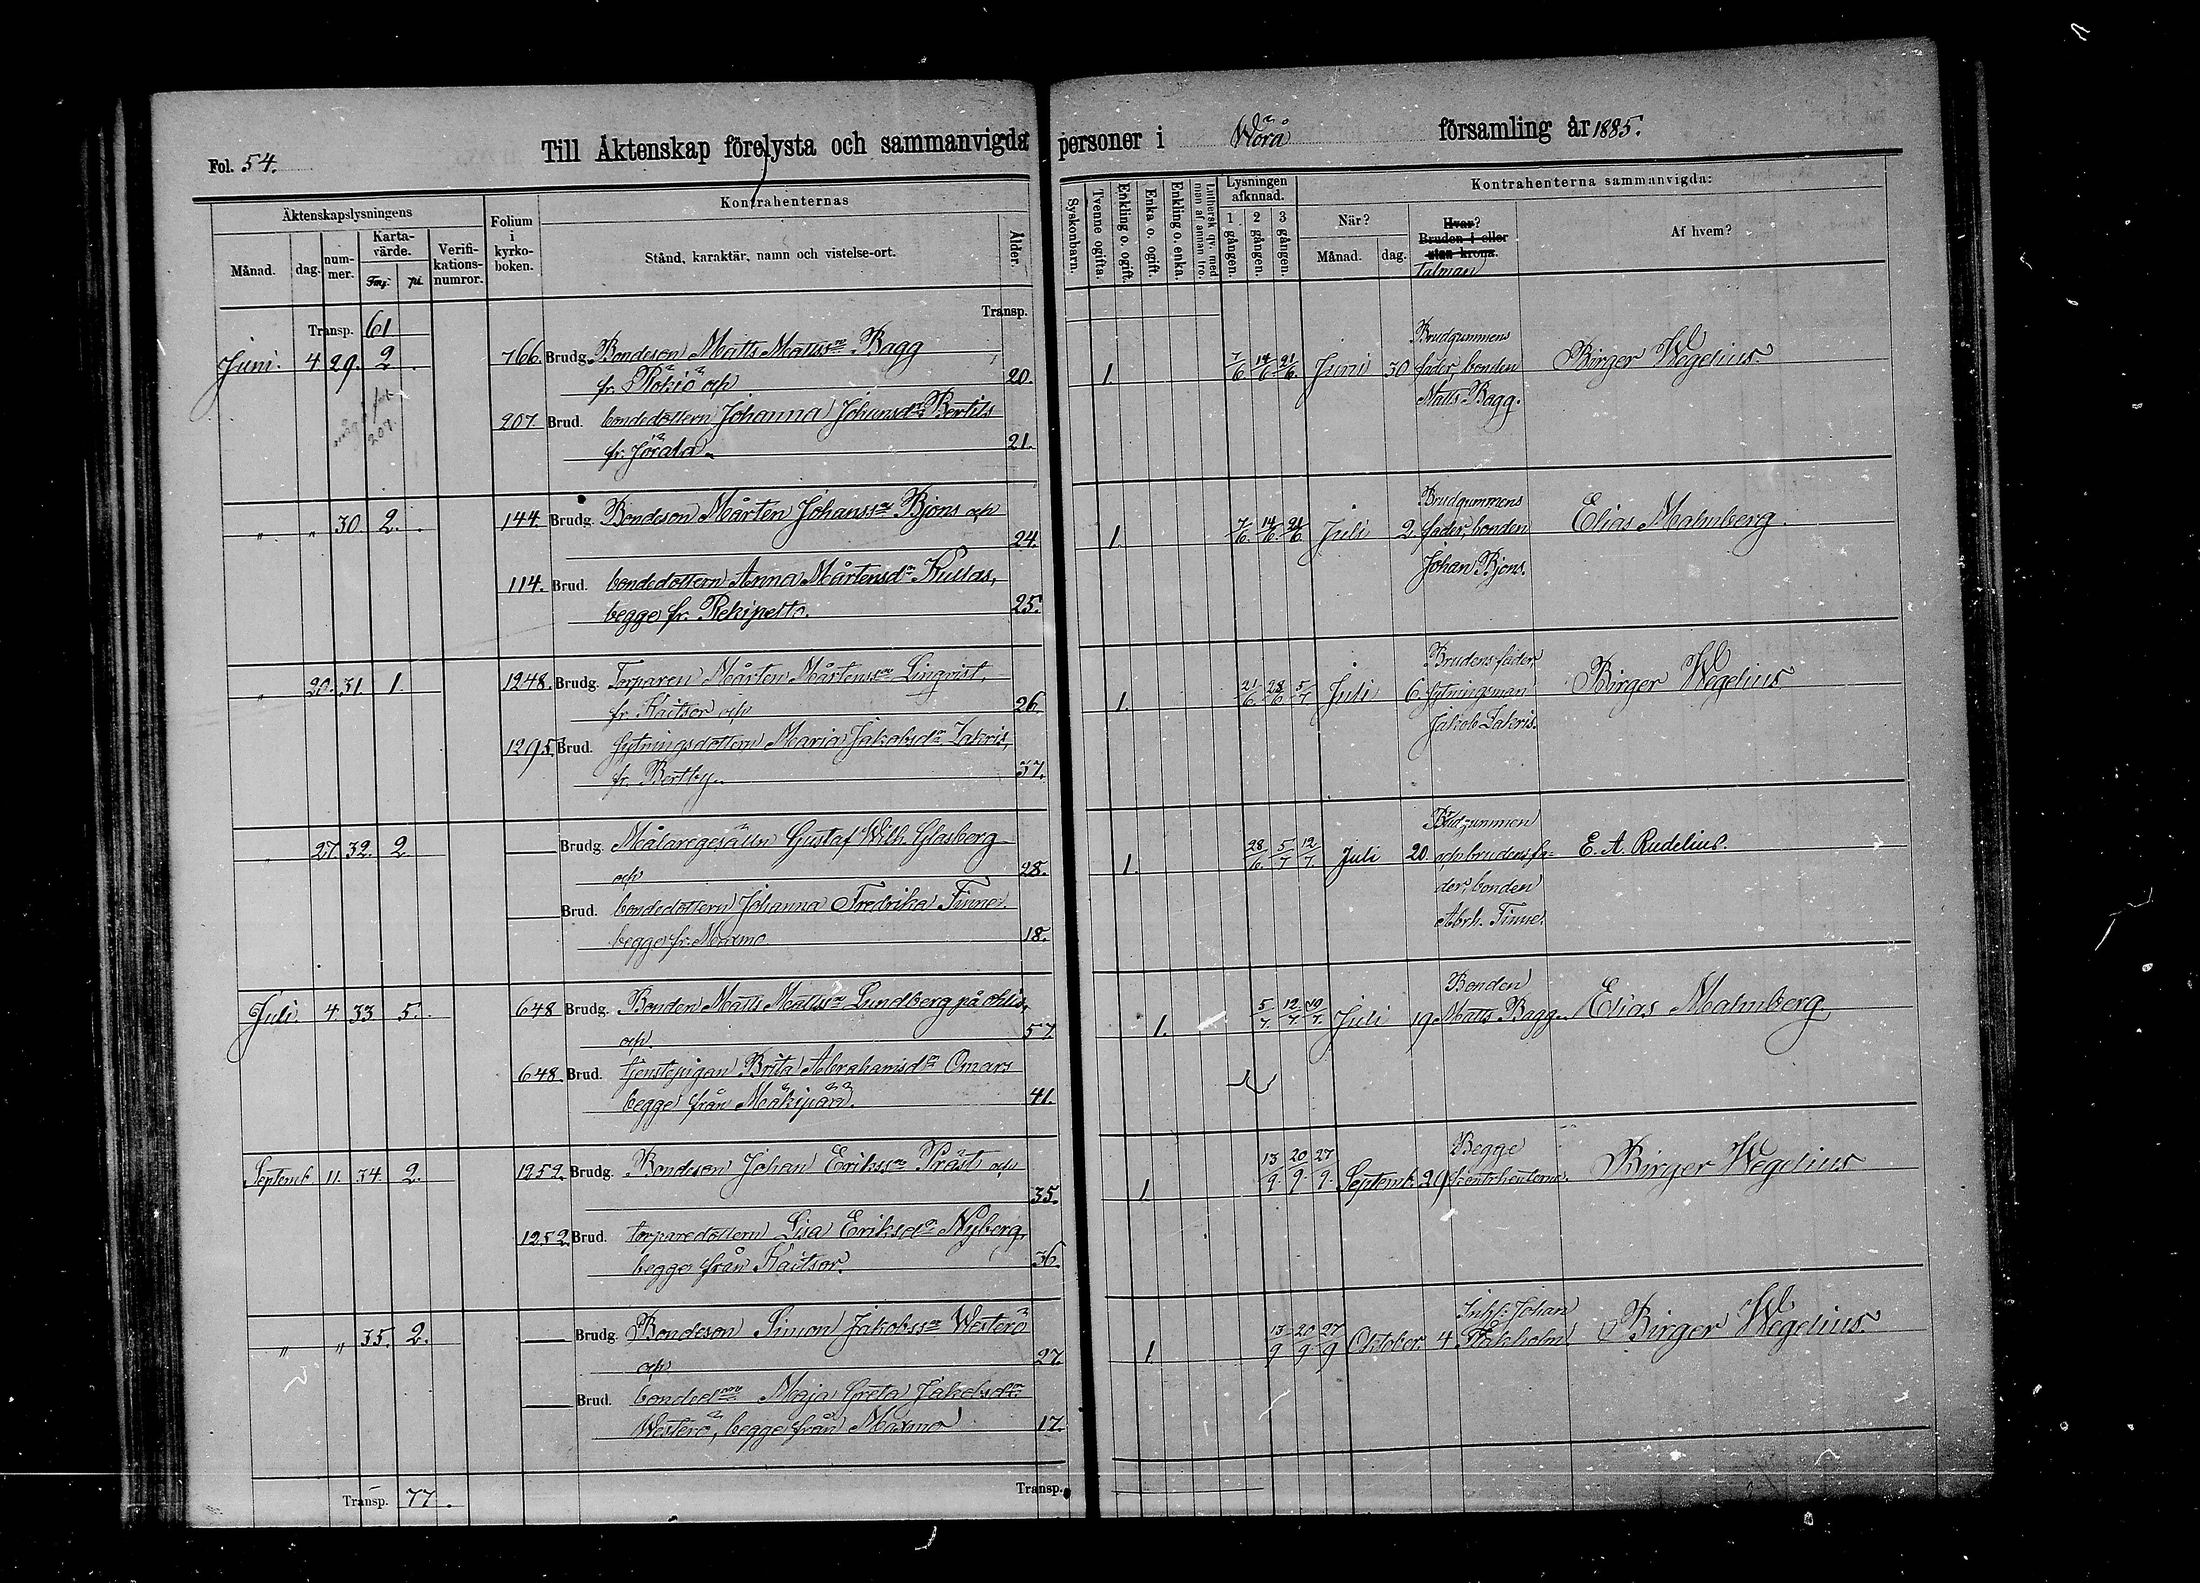 Fol. 54.
Till Äktenskap förelysta och sammanvigda personer i Wörå församling år 1885.
Äktenskapslysningens
Månad. dag. nummer. Kartavärde. Fmf. pi. Verifikationsnumror.
Folium i kyrkoboken.
Kontrahenternas
Stånd, karaktär, namn och vistelse-ort.
Ålder.
Syskonbarn.
Tvenne ogifta.
Enkling o. ogift.
Enka o. ogift.
Enkling o. enka.
Luthersk qv. med man af annan tro.
Lysningen afkunnad.
1 gången. 2 gången. 3 gången.
Kontrahenterna sammanvigda:
När?
Månad. dag.
Hvar?
Bruden i eller
utan krona.
Talman
Af hvem?
Transp. 61
Transp.
Juni. 4 29. 2 . 766. Brudg. Bondeson Matts Matsson Bagg
fr. Rökiö och 20. 1. 7/6 14/6 21/6 Juni 30 Brudgummens
fader bonden
Matts Bagg. Birger Wegelius.
fol
207.
207. Brud. bondedottern Johanna Johansdr Bertils
fr. Jörala. 21.
" " 30 2. . 144. Brudg. Bondeson Mårten Johanssn Bjons och
24. 1. 7/6. 14/6. 21/6 Juli 2. Brudgummens
fader, bonden
Johan Bjons. Elias Malmberg.
114. Brud. bondedottern Anna Mårtensdr Kullas,
begge fr. Rekipelto. 25.
" 20. 31. 1. 1248. Brudg. Torparen Mårten Mårtenssn Linqvist,
fr. Kaitsor och 26. 1. 21/6. 28/6 5/7 Juli 6. Brudens fader
sytningsman
Jakob Zakris. Birger Wegelius
1295. Brud. sytningsdottern Maria Jakobsdr Zakris,
fr. Bertby. 37.
" 27. 32. 2. Brudg. Målaregesälln Gustaf Wilh. Glasberg
och 28. 1. 28/6. 5/7 12/7. Juli 20. Brudgummen
och brudens fa-
der, bonden
Abrh. Finne. E. A. Rudelius.
Brud. bondedottern Johanna Fredrika Finne.
begge fr. Maxmo 18.
Juli. 4. 33 5. 648 Brudg. Bonden Matts Mattssn Lundberg på
och 57 1. 5/7. 12/7. 19/7. Juli 19 Bonden
Matts Bagg. Elias Malmberg.
648. Brud. tjenstepigan Brita Abrahamsdr Omars
begge från Mäkipää. 41.
Septemb. 11. 34. 2. 1252. Brudg. Bondeson Johan Erikssn Präst och
35. 1. 13/9. 20/9. 27/9. Septemb. 29 Begge
kontrhenterna. Birger Wegelius
1252. Brud. torparedottern Lisa Eriksdr Nyberg,
begge från Kaitsor. 36
" " 35. 2. Brudg. Bondeson Simon Jakobssn Westerö
och 27. 1. 13/9 20/9 27/9 Oktober. 4 Inhs. Johan
Stokholm. Birger Wegelius.
Brud. Maja Greta Jakobsdr
Westerö, begge från Maxmo 17.
Transp. 77.
Transp.